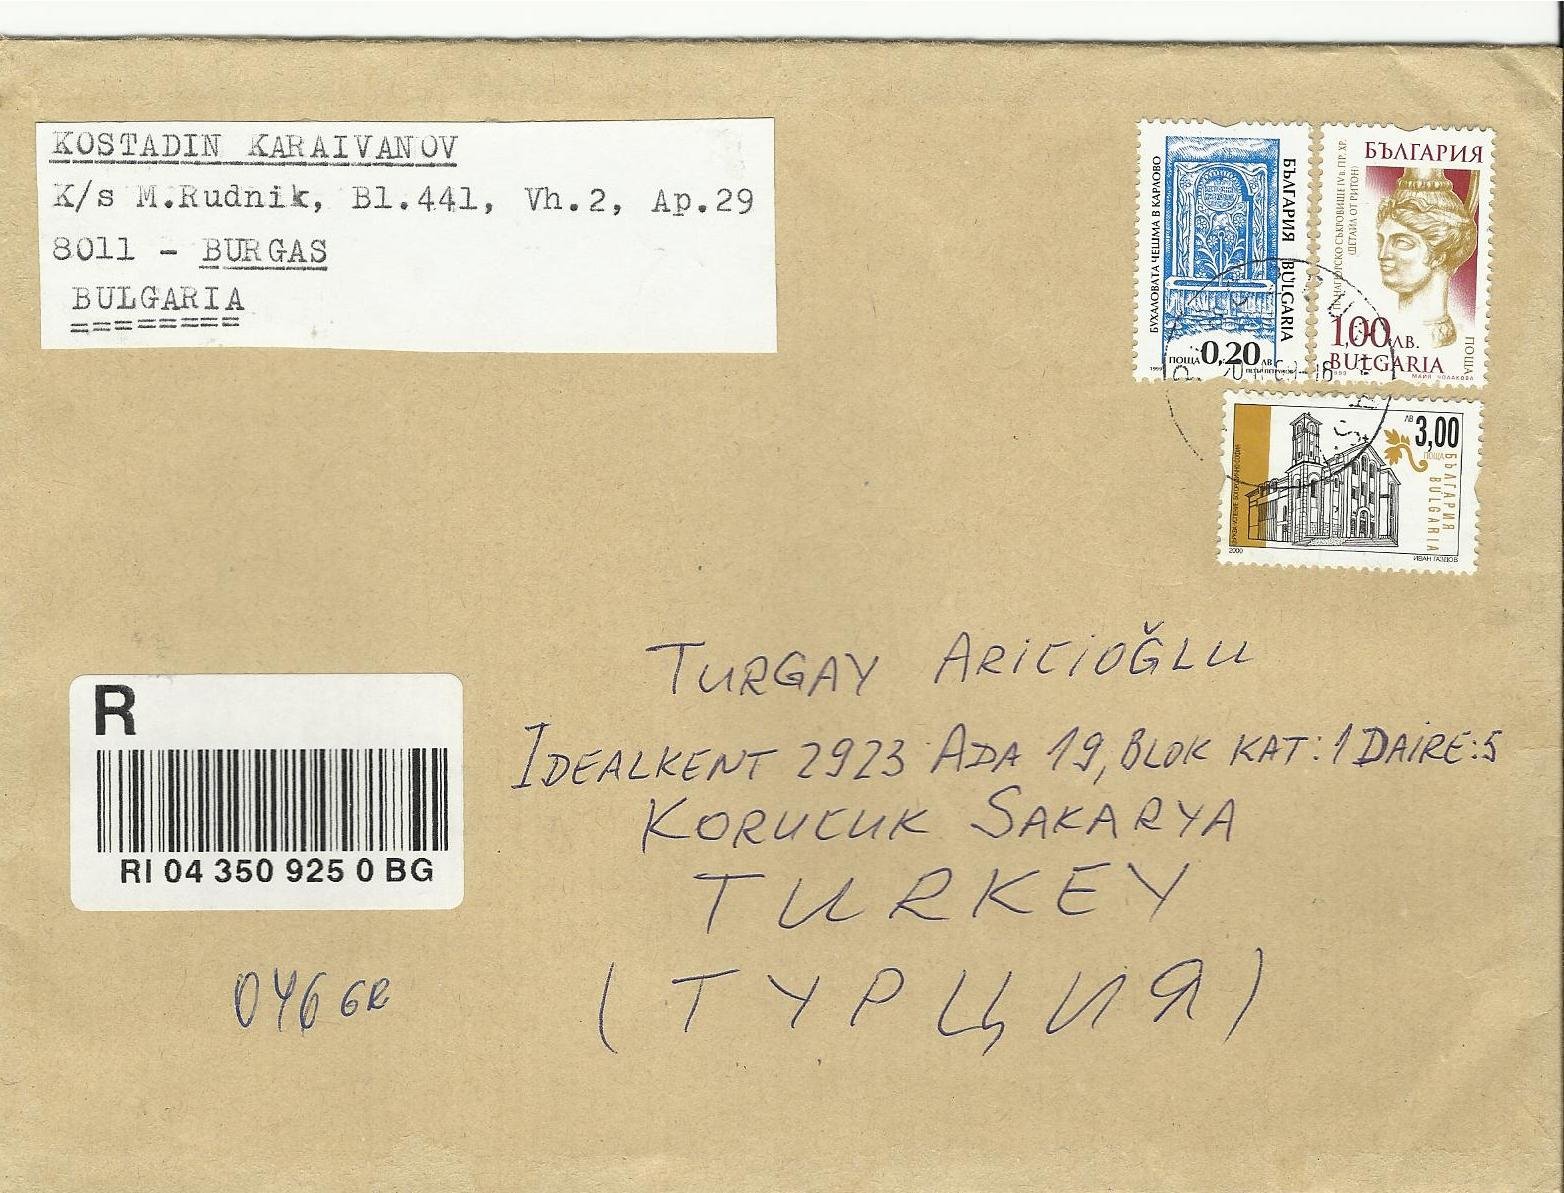 KOSTADIN KARAIVANOV
K/s M.Rudnik, Bl.441, Vh.2, Ap.29
8011 - BURGAS
BULGARIA
========
БУХАЛОВАТА ЧЕШМА В КАРЛОВО
БЪЛГАРИЯ BULGARIA
ПОЩА 0,20 ЛВ
1999
БЪЛГАРИЯ
ПАНАГЮРСКО СЪКРОВИЩЕ IV в. ПР. ХР.
(ДЕТАЙЛ ОТ РИТОН)
1,00 ЛВ.
BULGARIA
ПОЩА
1999 МАЙЯ ЧОЛАКОВА
ЛВ 3,00
ПОЩА
БЪЛГАРИЯ
BULGARIA
2000
ИВАН ГАЗДОВ
R
RI 04 350 925 0 BG
TURGAY ARICIOĞLU
IDEALKENT 2923 ADA 19, BLOK KAT:1 DAIRE:5
KORUCUK SAKARYA
TURKEY
(ТУРЦИЯ)
046 GR